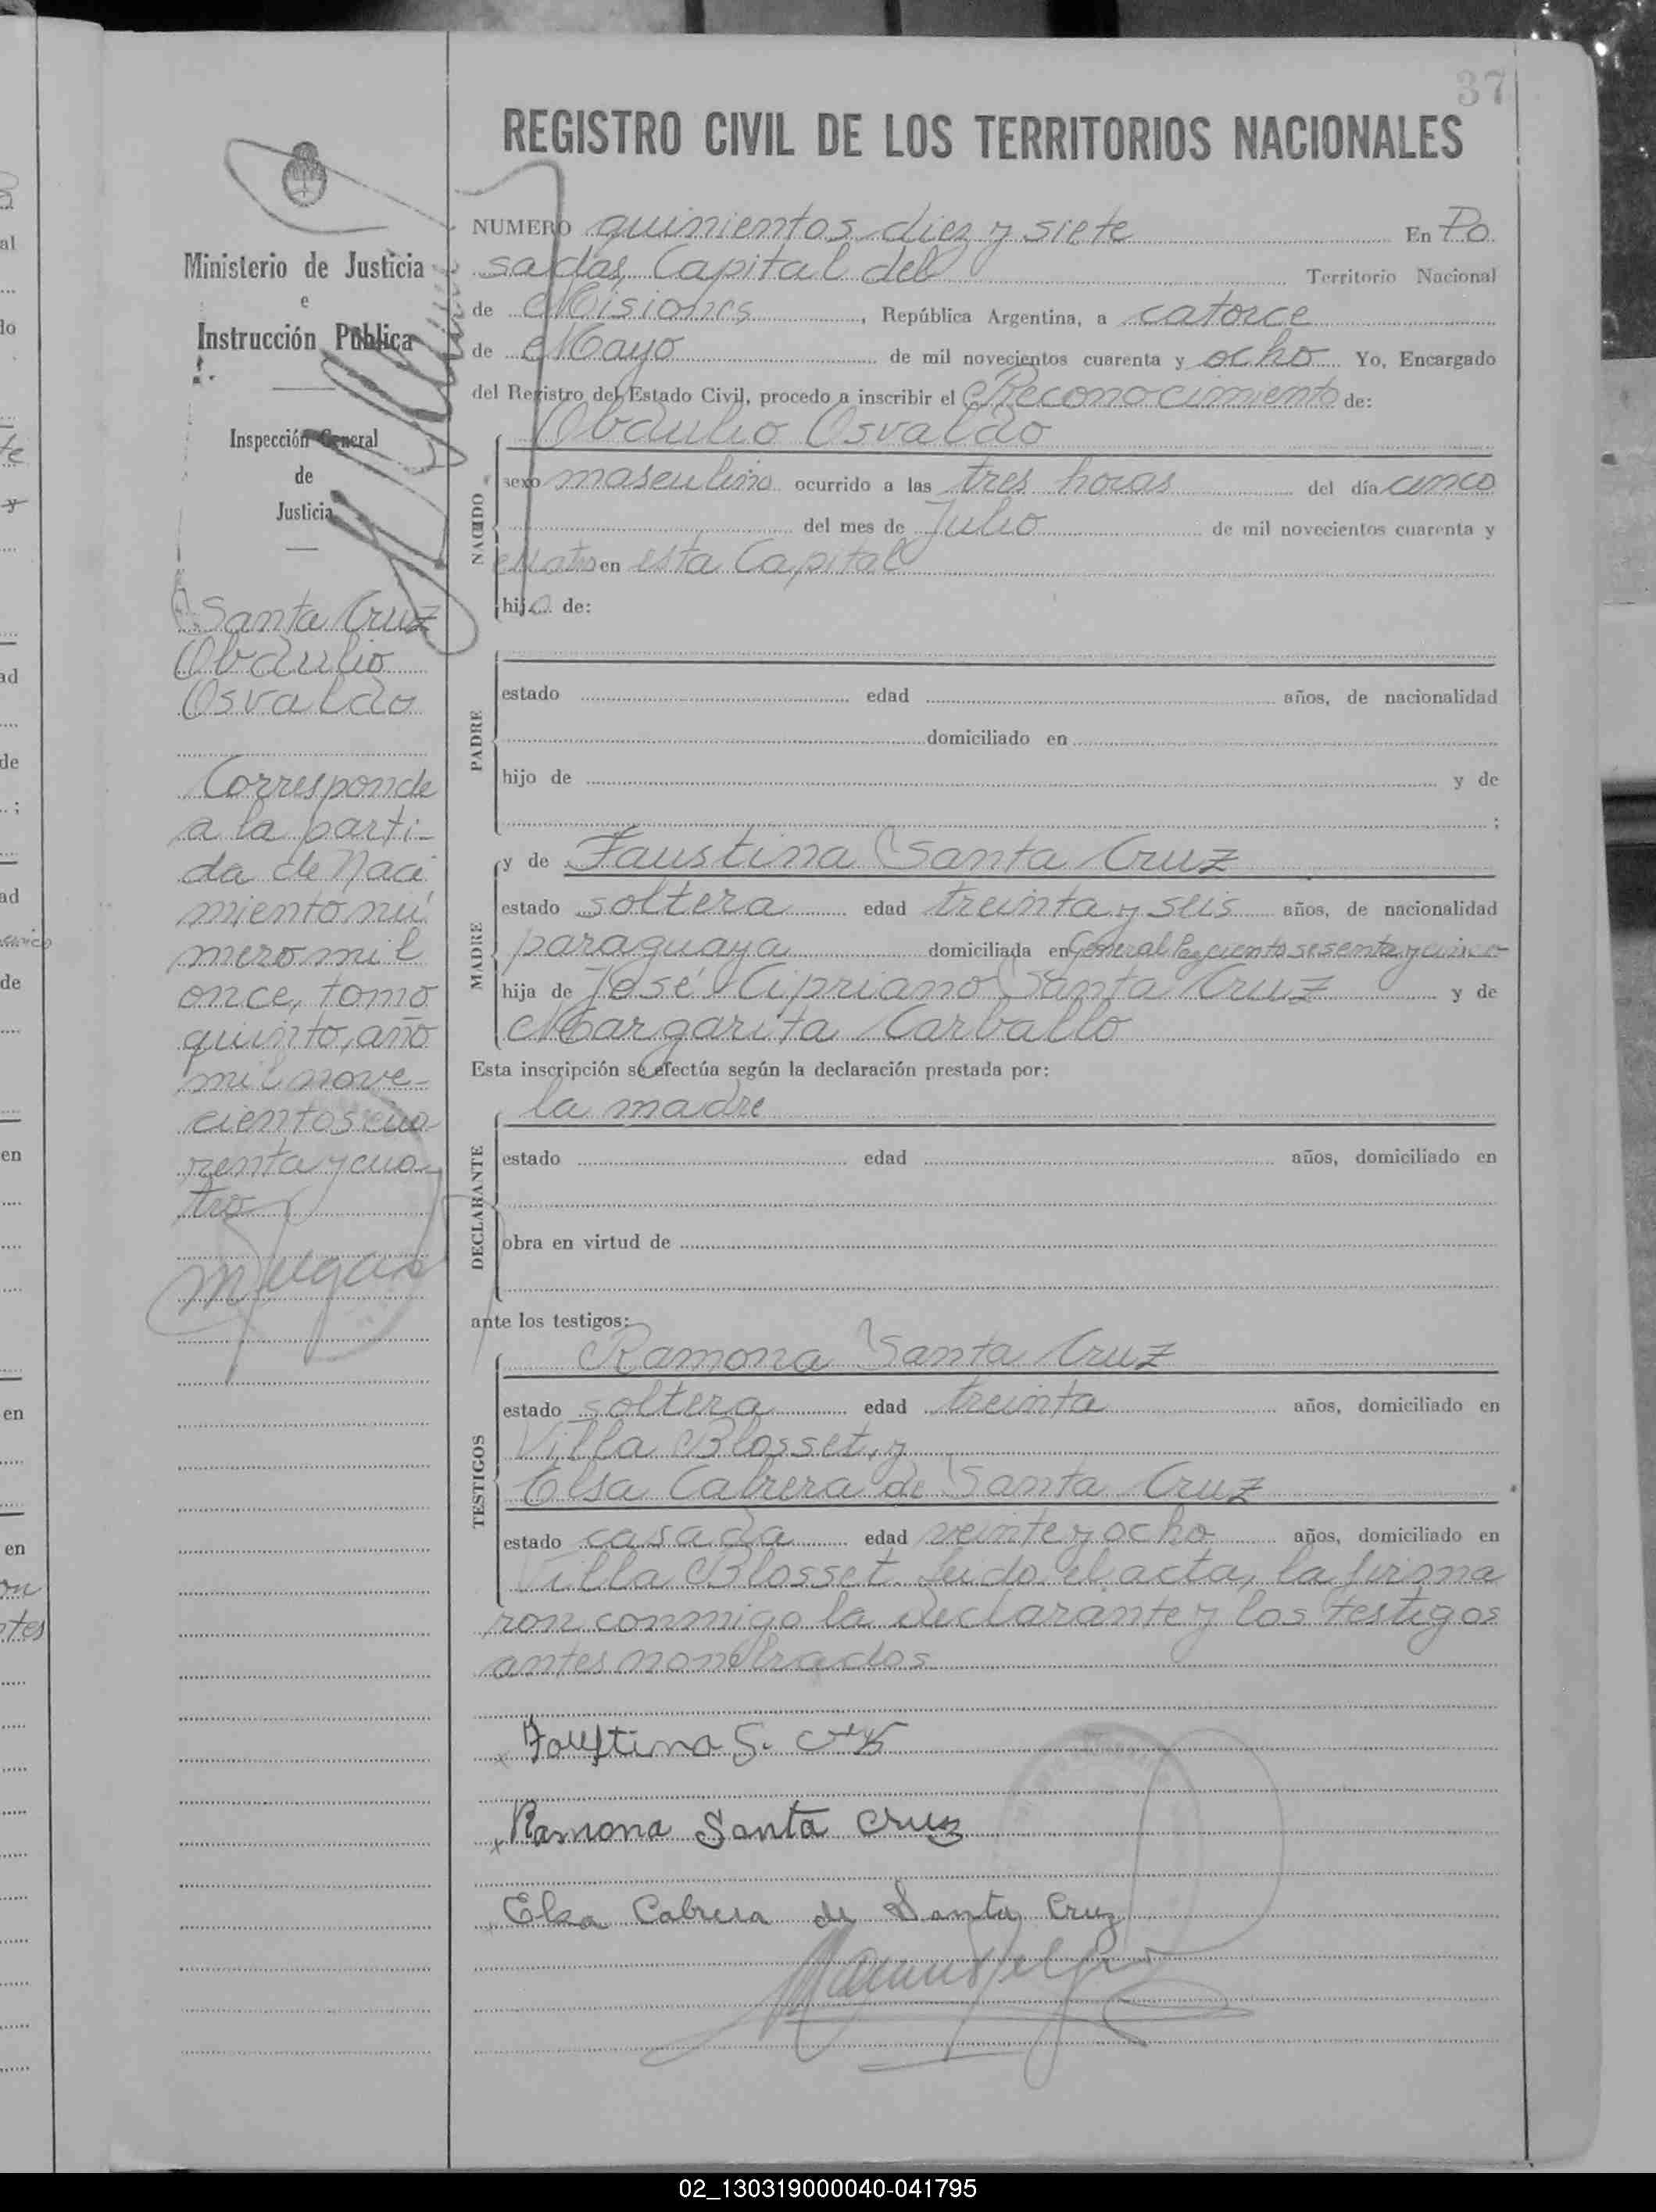 37
REGISTRO CIVIL DE LOS TERRITORIOS NACIONALES
Ministerio de Justicia
e
Instrucción Pública
Inspección General
de
Justicia
Santa Cruz
Obdulio
Osvaldo
Corresponde
a la parti-
da de Naci
miento nú
mero mil
once, tomo
quinto, año
mil nove-
cientos cua
renta y cua
tro
NUMERO quinientos diez y siete En Po
sadas, Capital del Territorio Nacional
de Misiones, República Argentina, a catorce
de Mayo de mil novecientos cuarenta y ocho Yo, Encargado
del Registro del Estado Civil, procedo a inscribir el Reconocimiento de:
Obdulio Osvaldo
NACIDO
sexo masculino ocurrido a las tres horas del día cinco
del mes de Julio de mil novecientos cuarenta y
cuatro en esta Capital
hijo de:
PADRE
estado edad años, de nacionalidad
domiciliado en
hijo de y de
;
MADRE
y de Faustina Santa Cruz
estado soltera edad treinta y seis años, de nacionalidad
paraguaya domiciliada en General Paz ciento sesenta y cinco
hija de José Cipriano Santa Cruz y de
Margarita Carballo
Esta inscripción se efectúa según la declaración prestada por:
la madre
DECLARANTE
estado edad años, domiciliado en
obra en virtud de
ante los testigos:
Ramona Santa Cruz
TESTIGOS
estado soltera edad treinta años, domiciliado en
Villa Blosset, y
Elsa Cabrera de Santa Cruz
estado casada edad veinte y ocho años, domiciliado en
Villa Blosset. Leido el acta, la firma
ron conmigo la declarante y los testigos
antes nombrados
Faustina S. Cruz
Ramona Santa Cruz
Elsa Cabrera de Santa Cruz
02_130319000040-041795